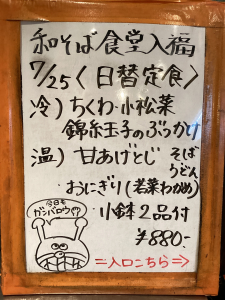 和そば食堂入福
7/25〈日替定食〉
冷）ちくわ・小松菜
錦糸玉子のぶっかけ
温）甘あげとじ そば
うどん
おにぎり（若菜わかめ）
小鉢2品付
¥880-
今日も
ガンバロウ!!
⇒入口こちら⇒